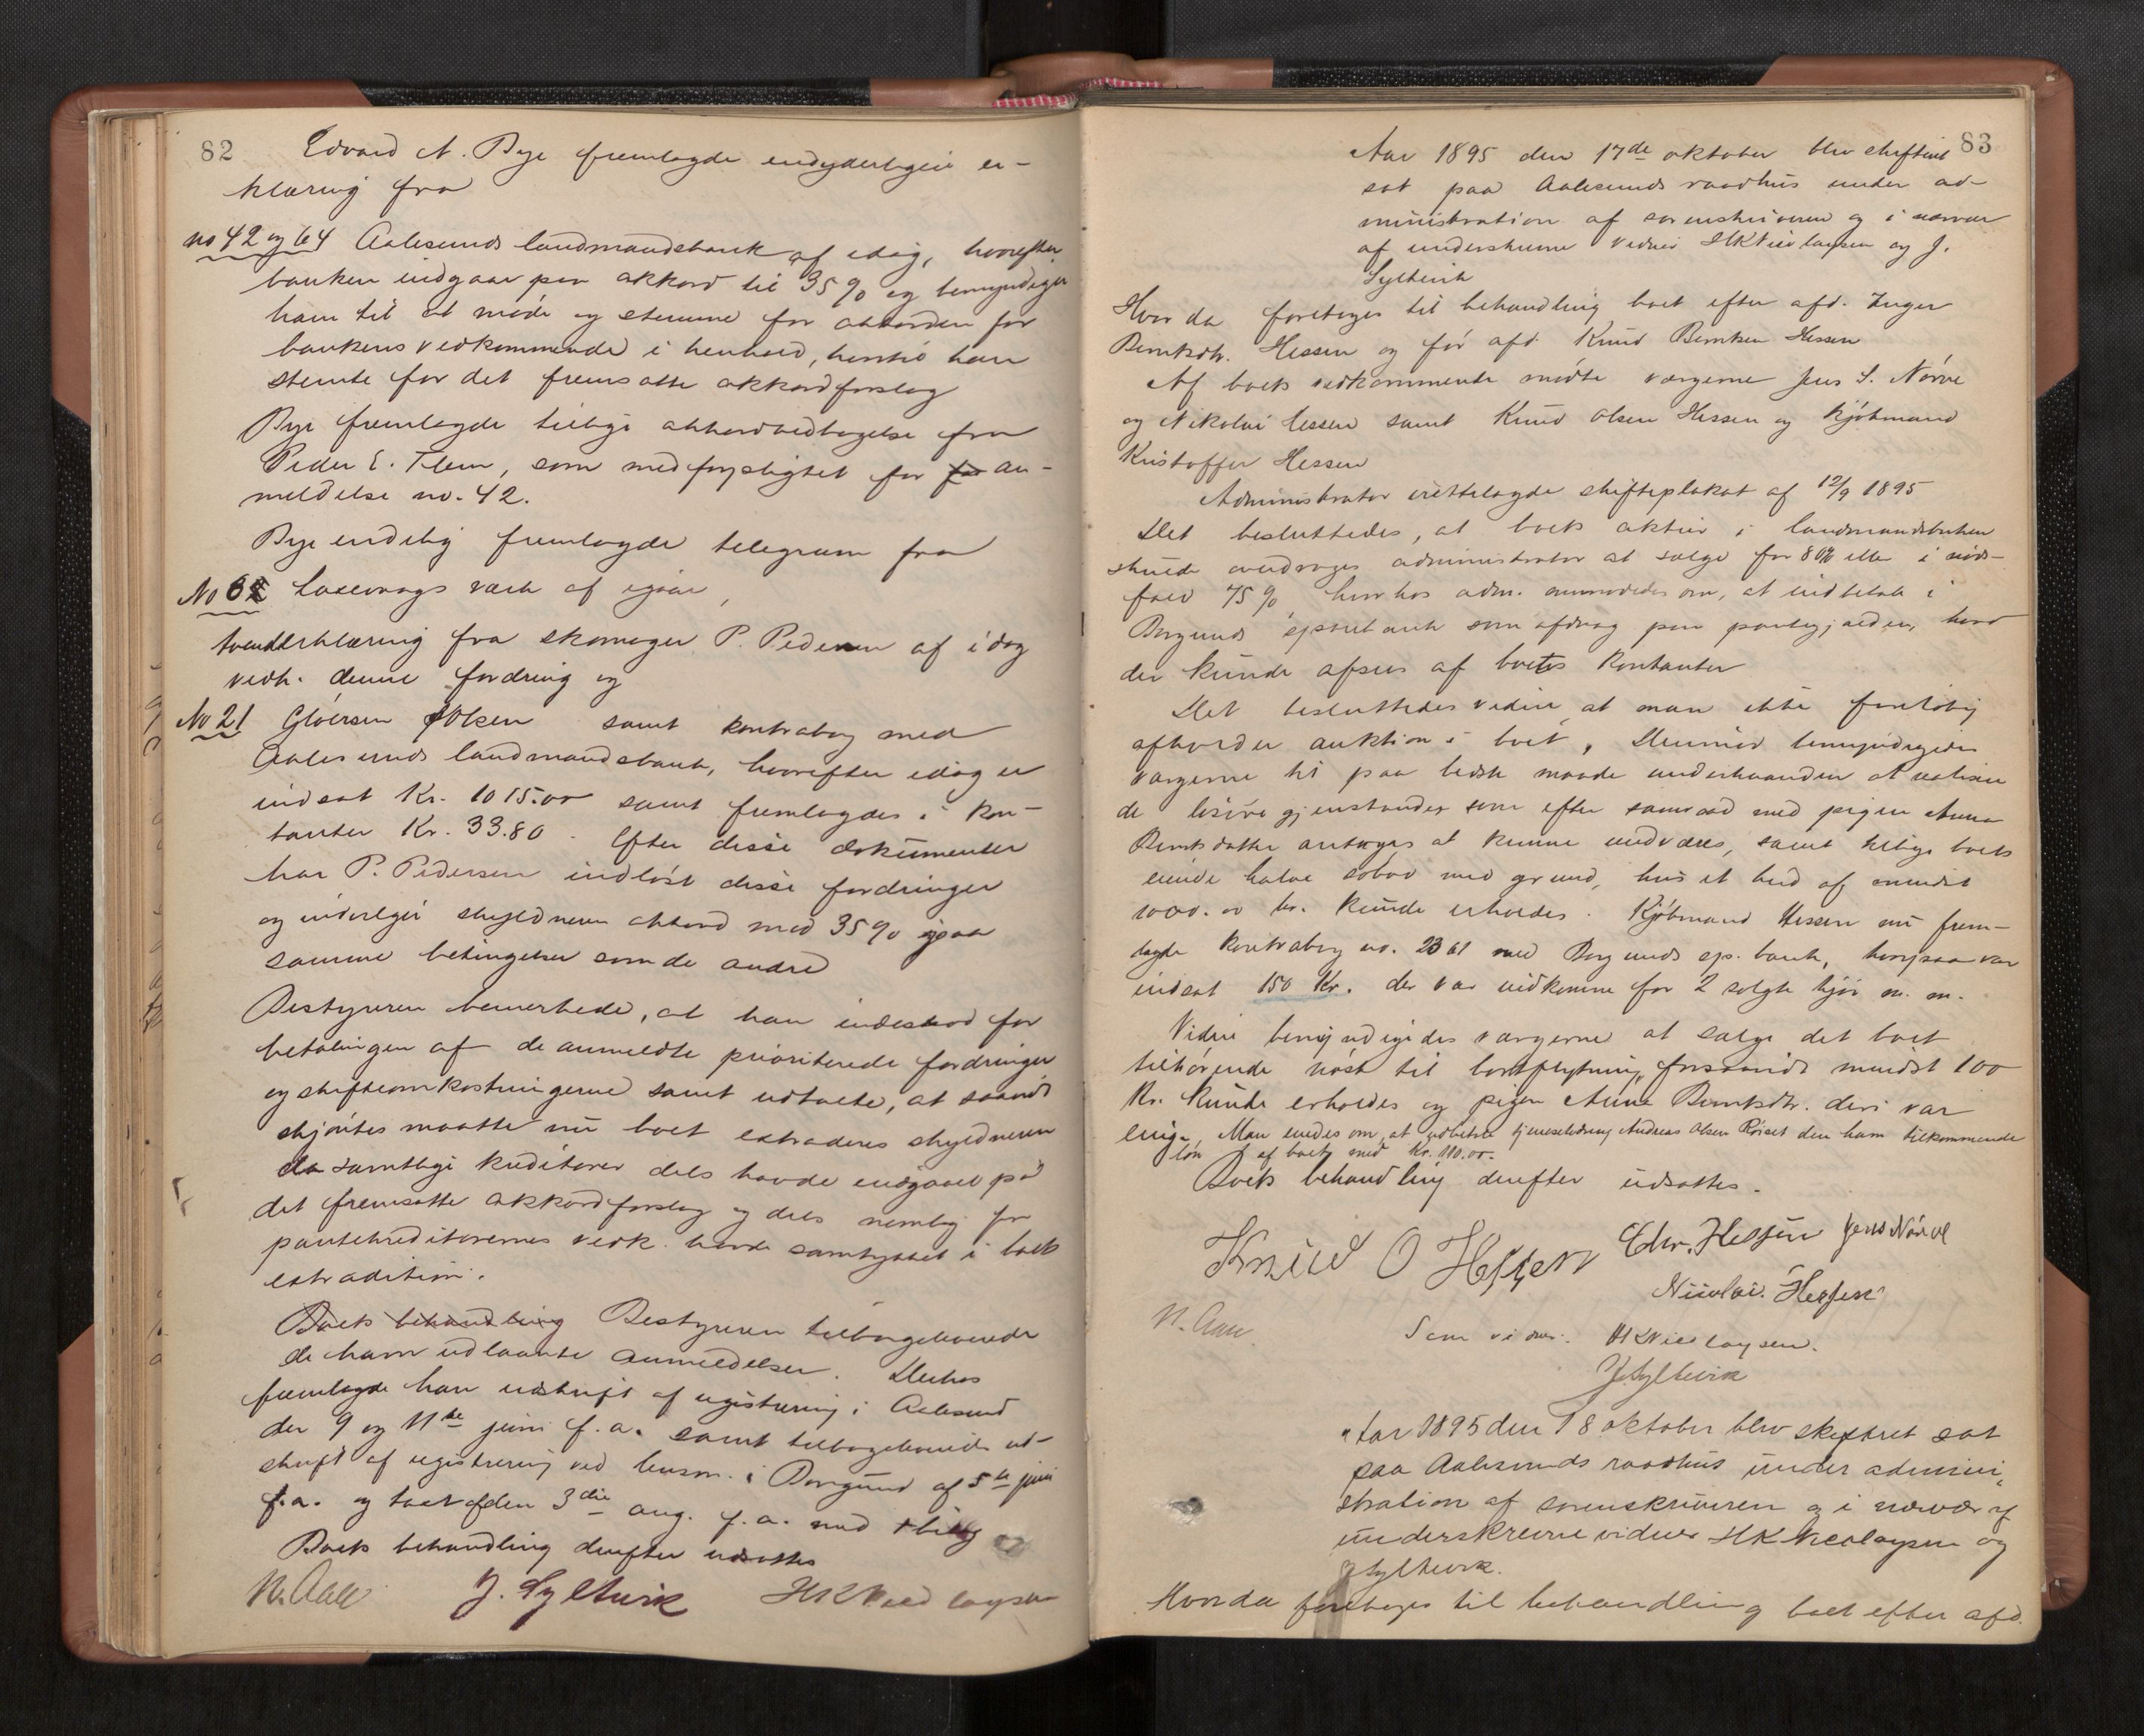 82
Edvard A. Bye fremlagde endyderligere er-
klæring fra
no 42 og 64 Aalesunds landmandsbank af idag, hvorefter
banken indgaar paa akkord til 35 % og bemyndiger
ham til at møde og stemme for akkorden for
bankens vedkommende i henhold, hvortil han
stemte for det fremsatte akkordforslag
Bye fremlagde tillige akkordvedtagelse fra
Peder E. Flem, som medforpligtet for for an-
meldelse no. 42.
Bye endelig fremlagde telegram fra
No 62 Laxevaags værk af igaar,
erklæring fra skomager P. Pedersen af idag
vedk. denne fordring og
No 21 Gløersen & Olsen samt kontrabog med
Aalesunds landmandsbank, hvorefter idag er
indsat Kr. 1015.00 samt fremlagdes i kon-
tanter Kr. 33.80. Efter disse dokumenter
har P. Pedersen indløst disse fordringer
og indrølger skyldneren akkord med 35 % paa
samme betingelser som de andre
Bestyreren bemerkede, at han indestod for
betalingen af de anmeldte prioriterede fordringer
og skifteomkostningerne samt udtalte, at saavidt
skjøntes maatte nu boet extraderes skyldneren
da samtlige kreditorer dels havde indgaaet på
det fremsatte akkordforslag og dels nemlig for
pantekreditorernes vedk. havde samtykket i boets
extradition.
Boets behandling Bestyreren tilbageleverede
de ham udlaante anmeldelser. Derhos
fremlagde han udskrift af registrering i Aalesund
den 9 og 11te juni f.a. samt tilbageleverede ud-
skrift af registrering ved lensm. i Borgund af 5te juni
f.a. og taxt af den 3die aug. f.a. med bilag
Boets behandling derefter udsattes
N. Aall J. Syltevik HKNicolaysen
83
Aar 1895 den 17de oktober blev skifteret
sat paa Aalesunds raadhus under ad-
ministration af sorenskriveren og i nærvær
af underskrevne vidner HKNicolaysen og J.
Syltevik
Hvor da foretoges til behandling boet efter afd. Inger
Berntsdtr. Hessen og før afd. Knud Berntsen Hessen
Af boets vedkommende mødte værgerne Jens S. Nørve
og Nikolai Hessen samt Knud Olsen Hessen og kjøbmand
Kristoffer Hessen
Administrator irettelagde skifteplakat af 12/9 1895
Det besluttedes, at boets aktier i landmandsbanken
skulde overdrages administrator at sælge for 80% eller i nøds-
fald 75 %, hvorhos adm. anmodedes om, at indbetale i
Borgunds sparebank som afdrag paa pantegjælden, hvad
der kunde afsees af boets kontanter
Det besluttedes videre at man ikke foreløbig
afholder auktion i boet. Derimod bemyndigedes
værgerne til paa bedste maade underhaanden at realisere
de løsøregjenstander som efter samraad med pigen Anna
Berntsdatter antoges at kunne undværes, samt tillige boets
eiende halve søbod med grund, hvis et bud af mindst
1000.00 kr. kunde erholdes. Kjøbmand Hessen nu frem-
lagde kontrabog no. 2361 med Borgunds sp. bank, hvorpaa var
indsat 150 Kr. der var indkomne for 2 solgte kjør m. m.
Videre bemyndigedes værgerne at sælge det boet
tilhørende nøst til bortflytning, forsaavidt mindst 100
Kr. kunde erholdes og pigen Anne Berntsdtr. deri var
enig. Man enedes om, at udbetale tjenestedreng Andreas Olsen Röiset den ham tilkommende
løn af boet med Kr. 110.00.
Boets behandling derefter udsattes.
Knud O Hessen Chr. Hessen Jens Nørve
Nicolai Hessen
N. Aall Som vidner: HKNicolaysen.
J. Syltevik
Aar 1895 den 18 oktober blev skifteret sat
paa Aalesunds raadhus under admini-
stration af sorenskriveren og i nærvær af
underskrevne vidner HK Nicolaysen og
J Syltevik.
Hvor da foretoges til behandling boet efter afd.